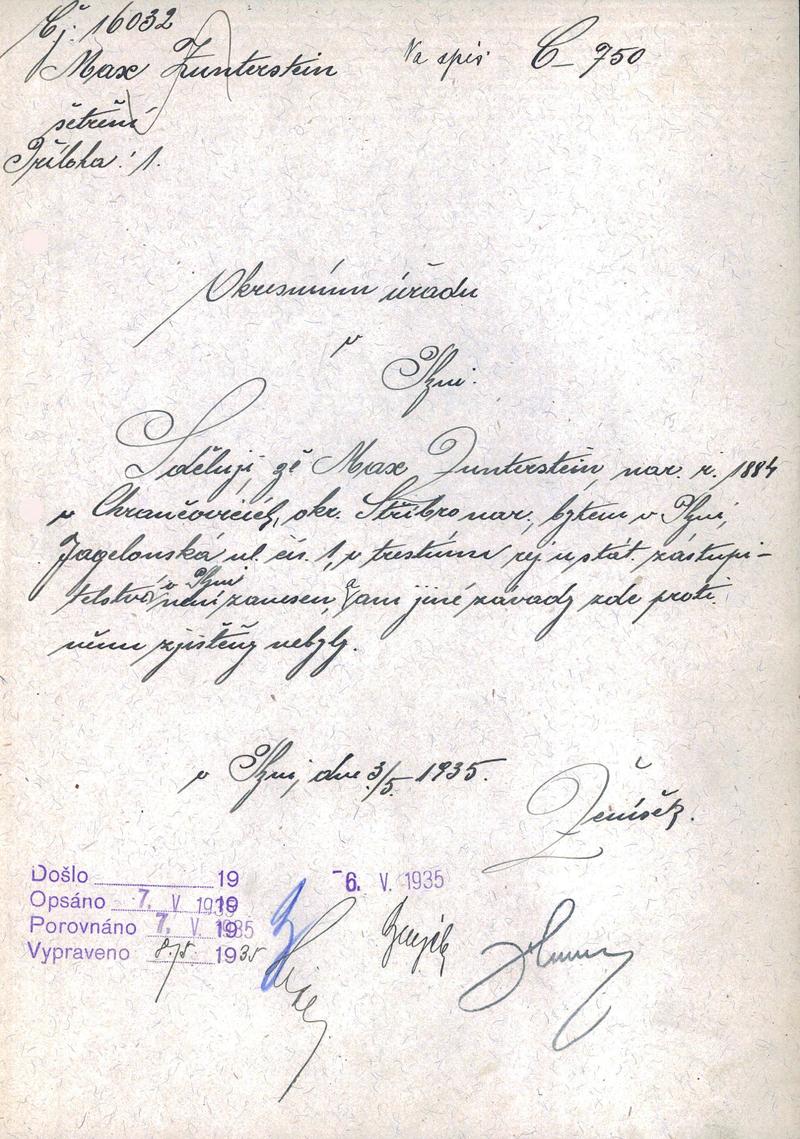 Čj. 16032
Max Zunterstein Na spis C – 750
šetření
Příloha: 1.
Okresnímu úřadu
v
Plzni.
Sděluji, že Max Zunterstein, nar. r. 1884
v Chrančovicích, okr. Stříbro nar., bytem v Plzni,
Jagelonská ul. čís. 1, v trestním rej. u stát. zástupi-
telství v Plzni není zanesen, a ani jiné závady zde proti
němu zjištěny nebyly.
v Plzni, dne 3/5. 1935.
Ženíšek.
Došlo 19
-6. V. 1935
Opsáno 7. V 1935 19
Porovnáno 7. V. 1935 19
Vypraveno 8./5. 1935